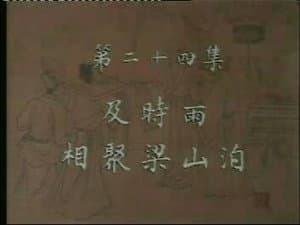 第二十四集
及時雨
相聚梁山泊